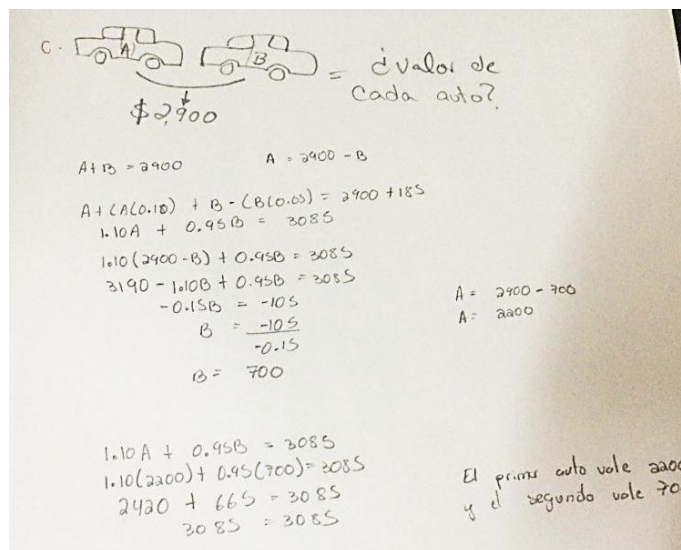 C.
A
B
= ¿Valor de
cada auto?
$2,900
A + B = 2900
A = 2900 - B
A + (A(0.10) + B - (B(0.05) = 2900 + 185
1.10A + 0.95B = 3085
1.10(2900-B) + 0.95B = 3085
3190 - 1.10B + 0.95B = 3085
-0.15B = -105
B = -105
-0.15
B = 700
A = 2900 - 700
A = 2200
1.10A + 0.95B = 3085
1.10(2200) + 0.95(700) = 3085
2420 + 665 = 3085
3085 = 3085
El primer auto vale 2200
y el segundo vale 70